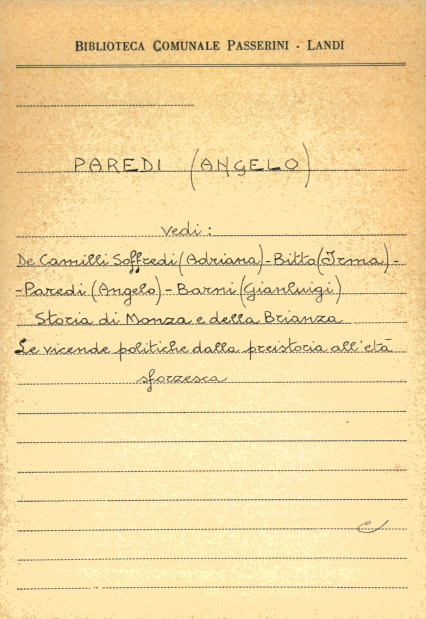 BIBLIOTECA COMUNALE PASSERINI - LANDI
PAREDI (ANGELO)
Vedi:
De Camilli Soffredi (Adriana) - Bitto (Irma) -
- Paredi (Angelo) - Barni (Gianluigi)
Storia di Monza e della Brianza
Le vicende politiche dalla preistoria all'età
sforzesca